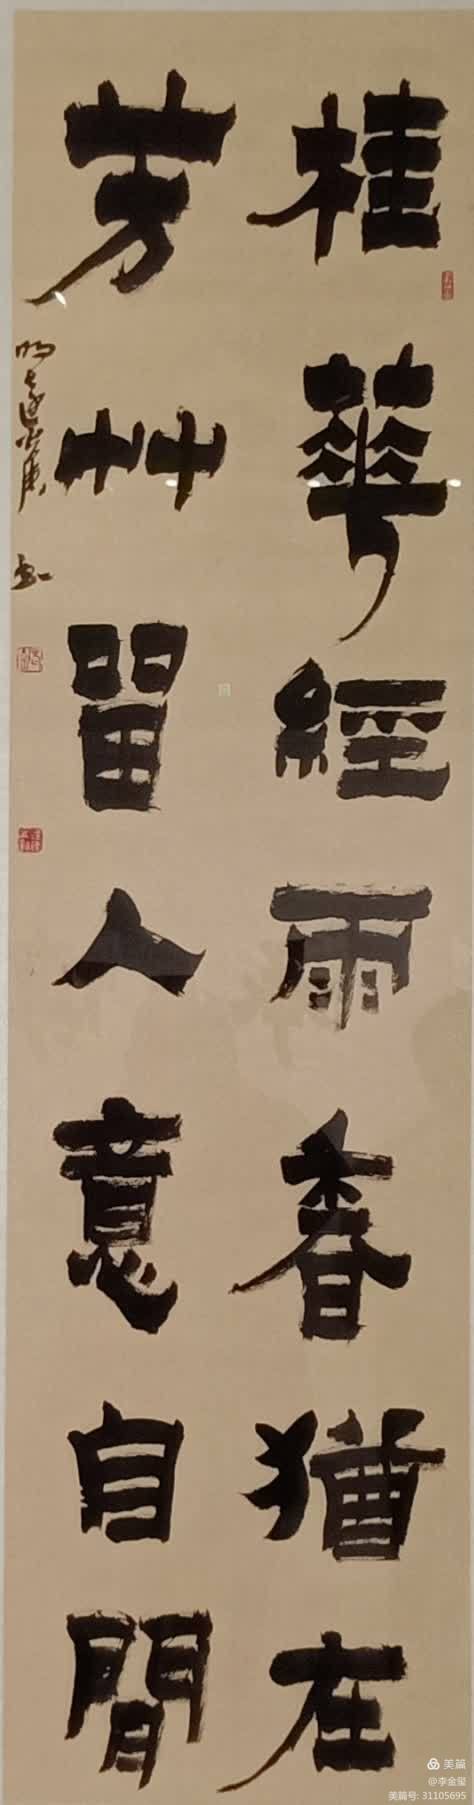 桂華經雨香猶在
芳艸留人意自閒
美篇
@李金玺
美篇号: 31105695